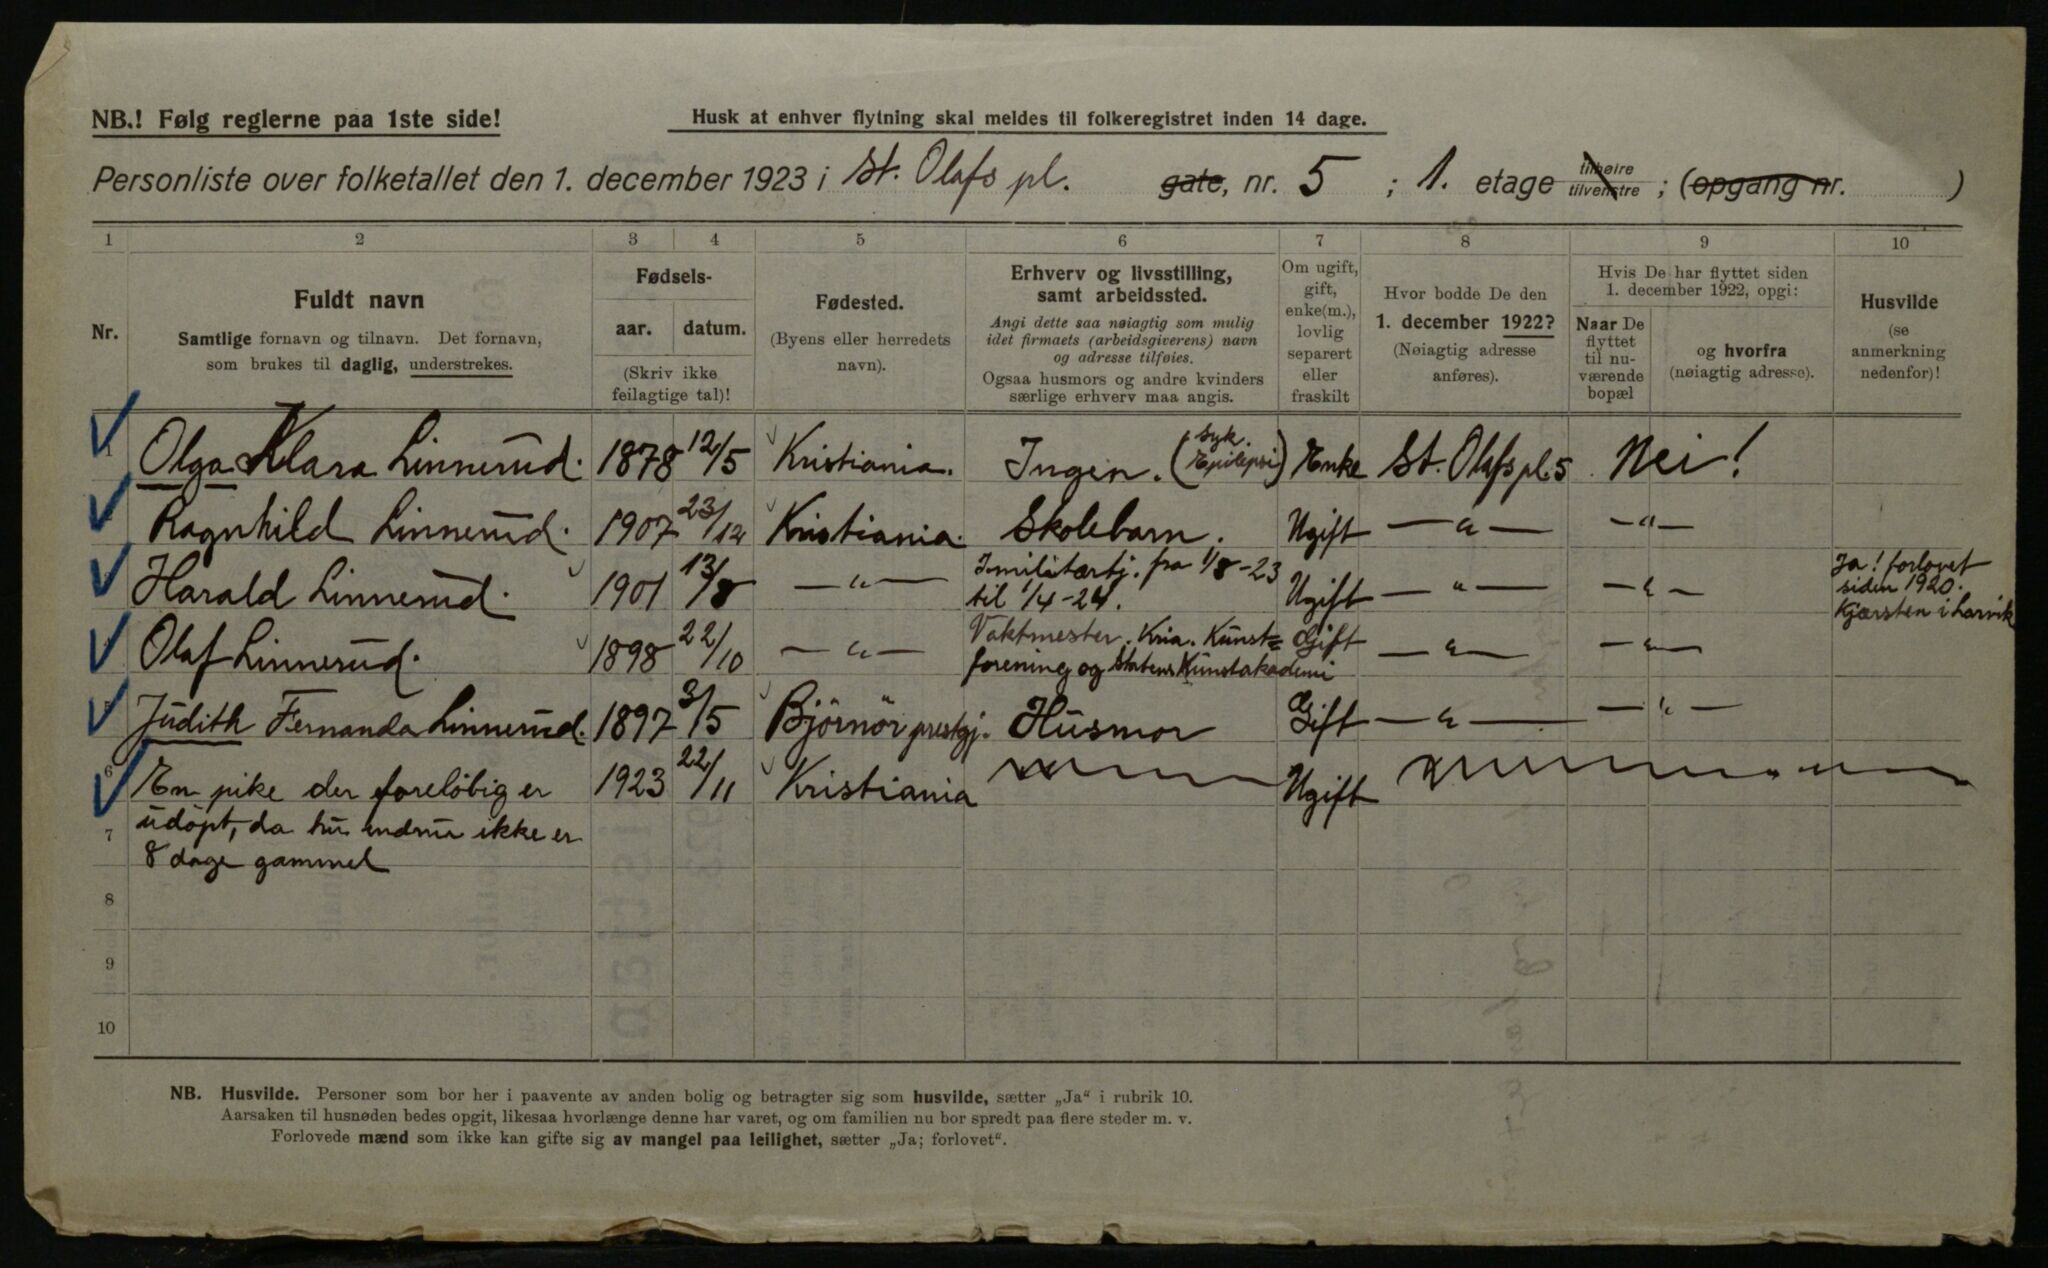 NB.! Følg reglerne paa 1ste side!
Husk at enhver flytning skal meldes til folkeregistret inden 14 dage.
Personliste over folketallet den 1. december 1923 i St. Olafs pl. gate, nr. 5 ; 1. etage tilhøire tilvenstre ; (opgang nr. )
1 2 3 4 5 6 7 8 9 10
Nr.
Fuldt navn
Samtlige fornavn og tilnavn. Det fornavn,
som brukes til daglig, understrekes.
Fødsels-
aar. datum.
(Skriv ikke
feilagtige tal)!
Fødested.
(Byens eller herredets
navn).
Erhverv og livsstilling,
samt arbeidssted.
Angi dette saa nøiagtig som mulig
idet firmaets (arbeidsgiverens) navn
og adresse tilføies.
Ogsaa husmors og andre kvinders
særlige erhverv maa angis.
Om ugift,
gift,
enke(m.),
lovlig
separert
eller
fraskilt
Hvor bodde De den
1. december 1922?
(Nøiagtig adresse
anføres).
Hvis De har flyttet siden
1. december 1922, opgi:
Naar De
flyttet
til nu-
værende
bopæl
og hvorfra
(nøiagtig adresse).
Husvilde
(se
anmerkning
nedenfor)!
1 Olga Klara Linnerud. 1878 12/5 Kristiania. Ingen. (Syk. Epilepsi) Enke St. Olafs pl. 5 Nei!
2 Ragnhild Linnerud. 1907 23/12 Kristiania. Skolebarn. Ugift — " — — " —
3 Harald Linnerud. 1901 13/8 — " — I militærtj. fra 1/8-23 til 1/4-24. Ugift — " — — " — Ja! forlovet siden 1920. Kjærsten i Larvik
4 Olaf Linnerud. 1898 22/10 — " — Vaktmester. Kria. Kunst= forening og Statens Kunstakademi Gift — " — — " —
5 Judith Fernanda Linnerud. 1897 3/5 Björnör prestgj. Husmor Gift — " — — " —
6 En pike der foreløbig er 1923 22/11 Kristiania Ugift
7 udöpt, da hun endnu ikke er
8 dage gammel
8
9
10
NB. Husvilde. Personer som bor her i paavente av anden bolig og betragter sig som husvilde, sætter „Ja“ i rubrik 10.
Aarsaken til husnøden bedes opgit, likesaa hvorlænge denne har varet, og om familien nu bor spredt paa flere steder m. v.
Forlovede mænd som ikke kan gifte sig av mangel paa leilighet, sætter „Ja; forlovet“.